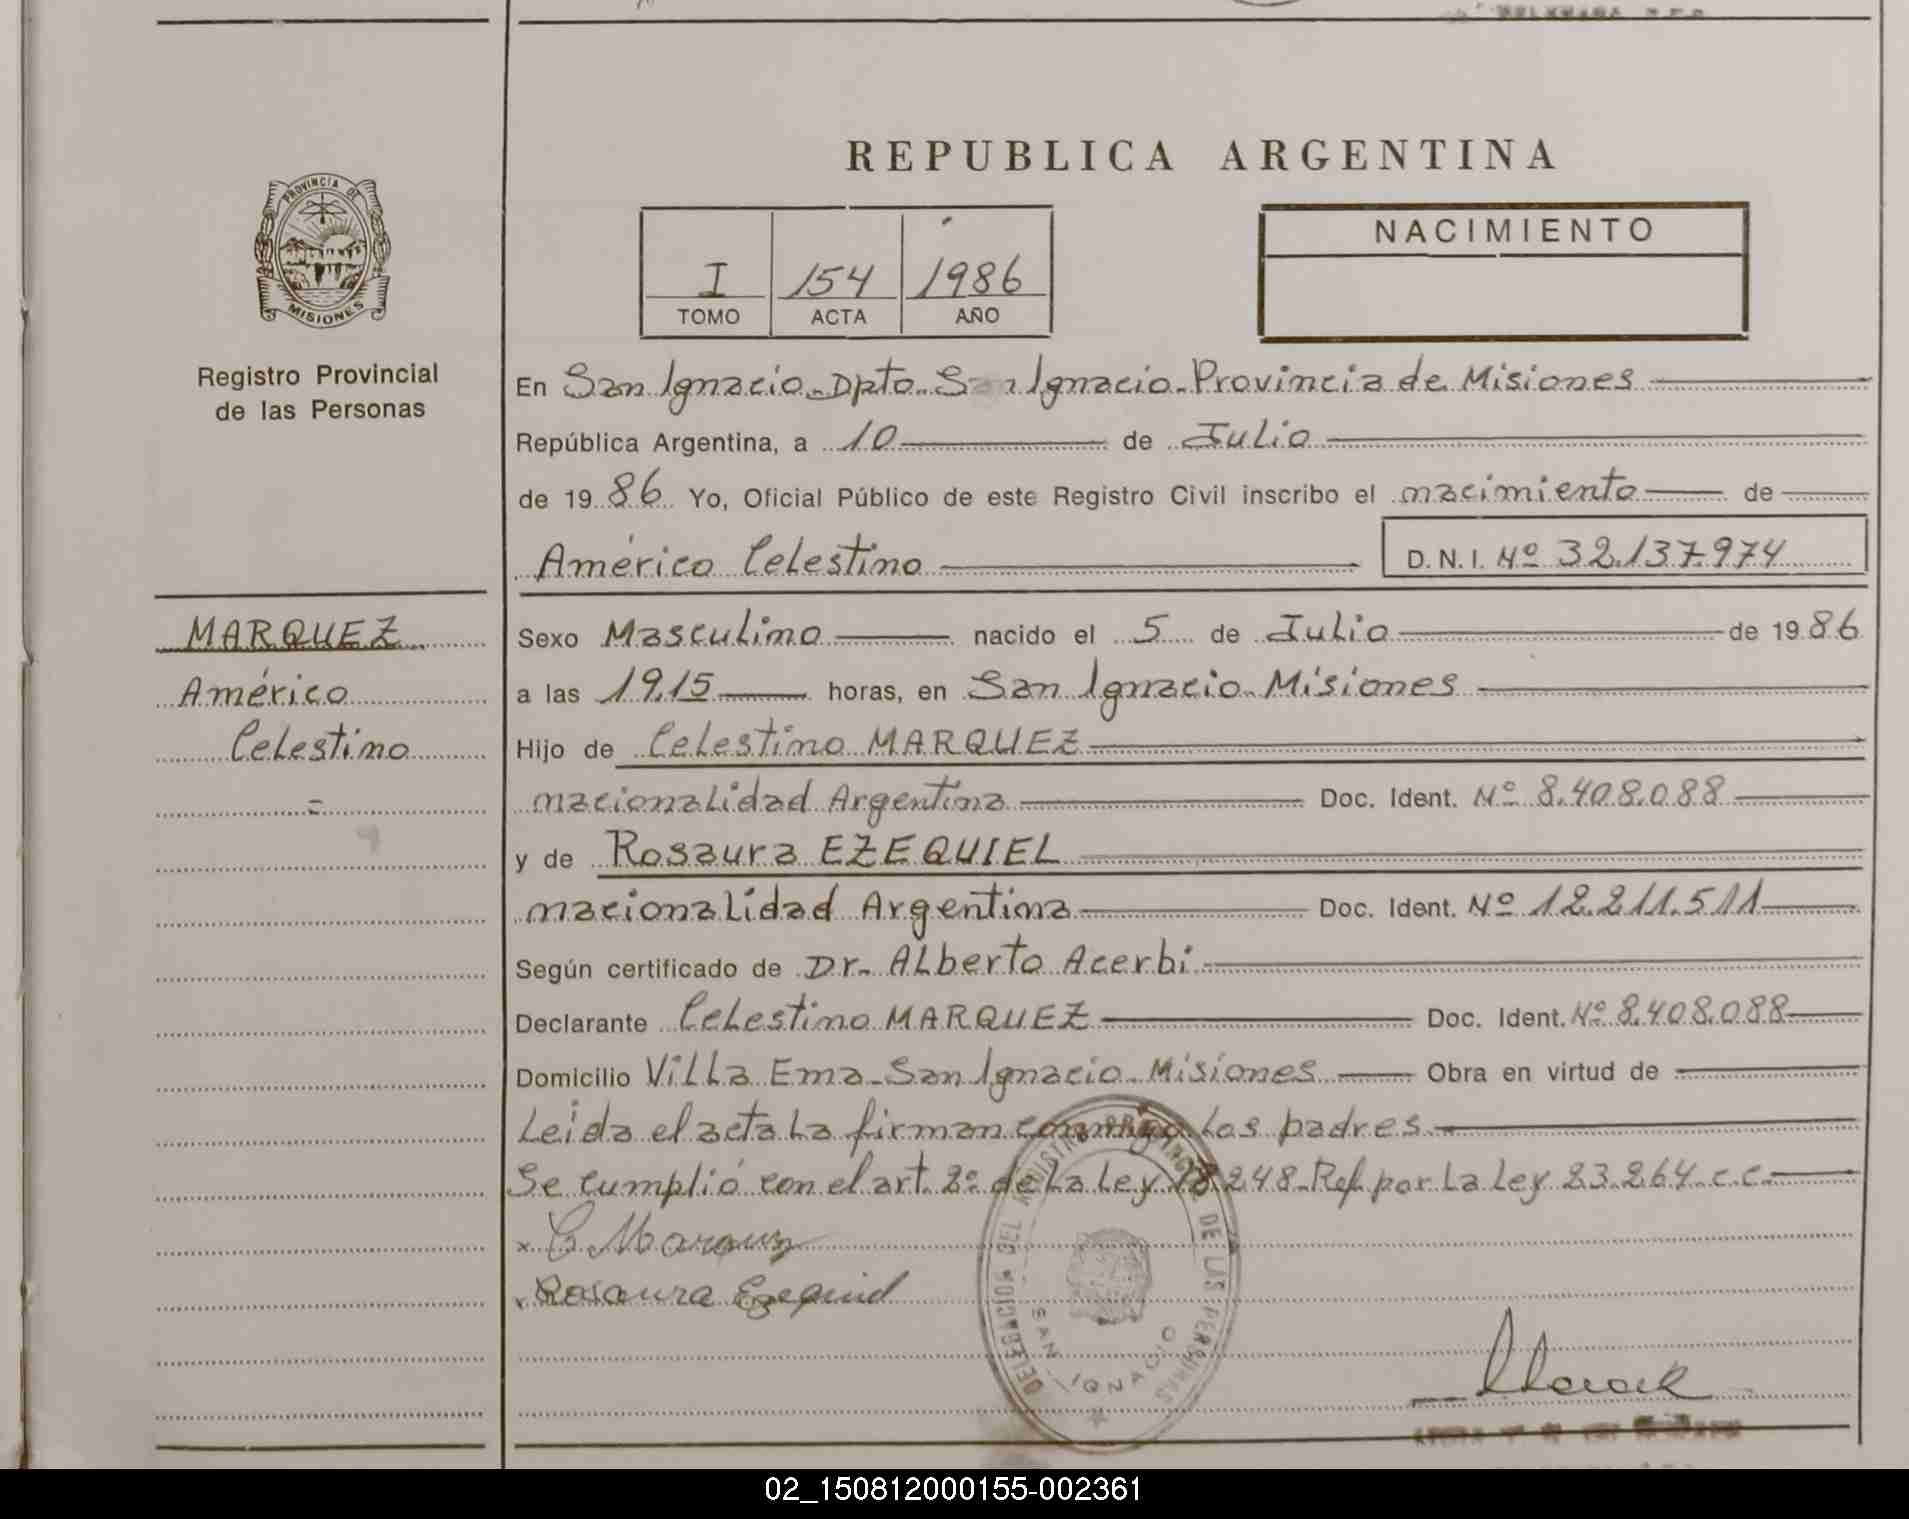 REPUBLICA ARGENTINA
PROVINCIA DE
MISIONES
Registro Provincial
de las Personas
NACIMIENTO
I 154 1986
TOMO ACTA AÑO
En San Ignacio-Dpto-San Ignacio-Provincia de Misiones
República Argentina, a 10 de Julio
de 1986 Yo, Oficial Público de este Registro Civil inscribo el nacimiento de
Américo Celestino D.N.I. Nº 32.137.974
MARQUEZ
Américo
Celestino
Sexo Masculino nacido el 5 de Julio de 1986
a las 19.15 horas, en San Ignacio-Misiones
Hijo de Celestino MARQUEZ
nacionalidad Argentina Doc. Ident. Nº 8.408.088
y de Rosaura EZEQUIEL
nacionalidad Argentina Doc. Ident. Nº 12.211.511
Según certificado de Dr. Alberto Acerbi
Declarante Celestino MARQUEZ Doc. Ident. Nº 8.408.088
Domicilio Villa Ema-San Ignacio-Misiones Obra en virtud de
Leida el acta la firman conmigo los padres
Se cumplió con el art. 2º de la Ley 18.248-Ref. por la Ley 23.264.c.c.
x C Marquez
x Rosaura Ezequiel
DE LAS PERSONAS
SAN IGNACIO
02_150812000155-002361